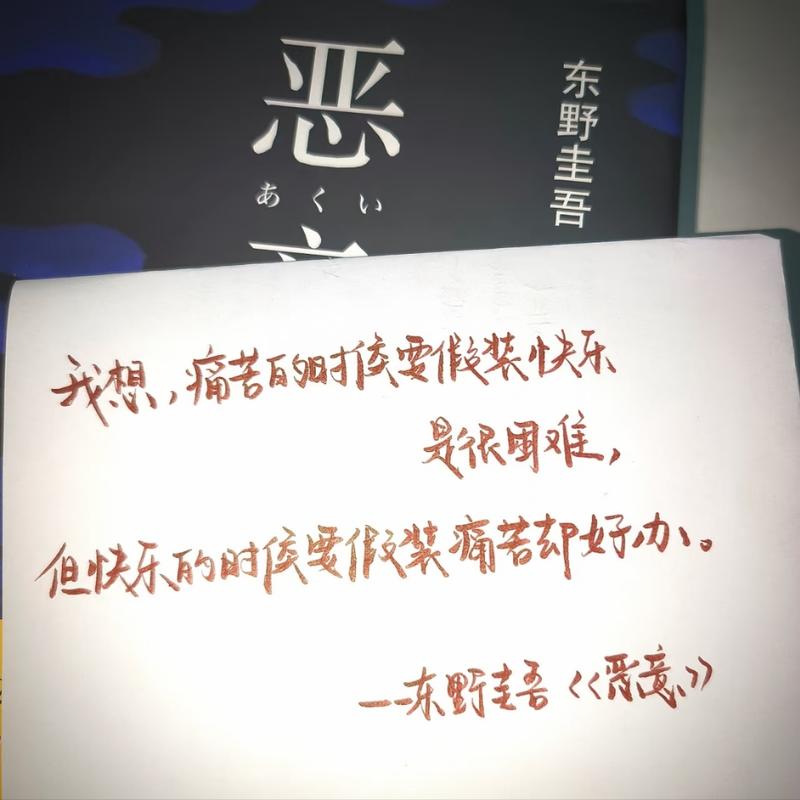 恶
あくい
东野圭吾
我想，痛苦的时候要假装快乐
是很困难，
但快乐的时候要假装痛苦却好办。
——东野圭吾《恶意》